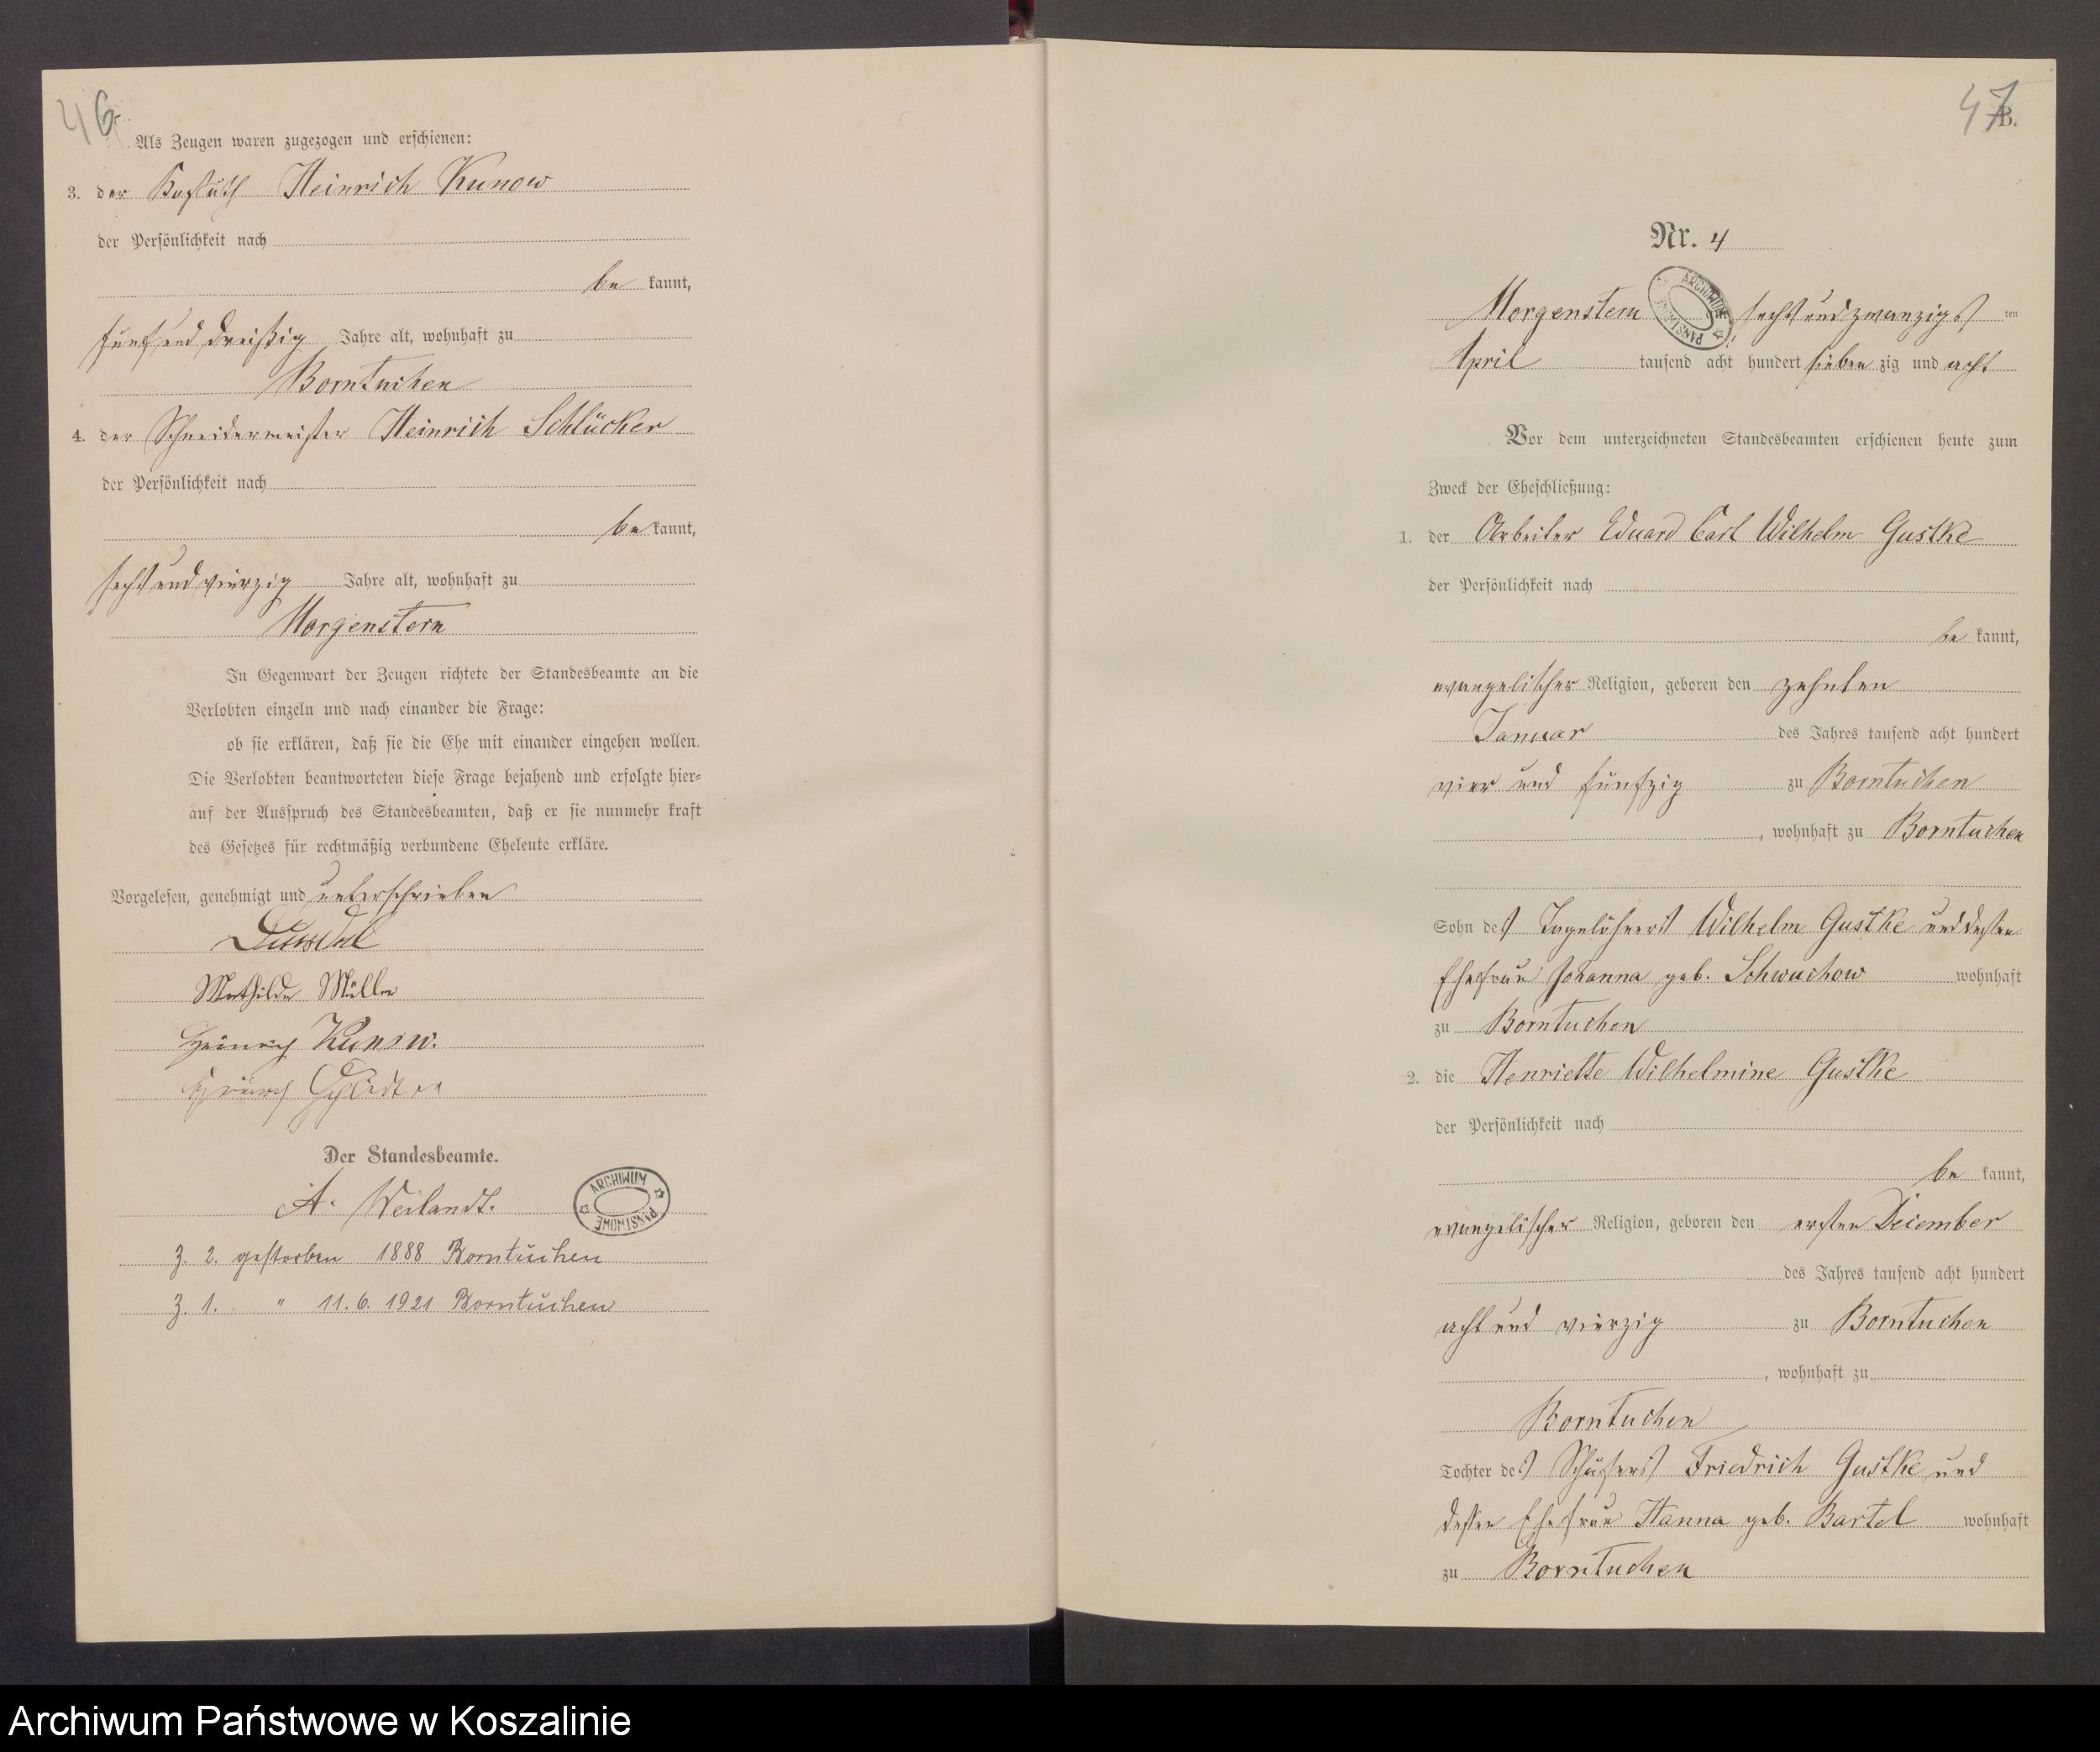 46.
Als Zeugen waren zugezogen und erschienen:
3. der Heinrich Kunow
der Persönlichkeit nach
be kannt,
fünf und dreißig Jahre alt, wohnhaft zu
Borntuchen
4. der Schneidermeister Heinrich Schlücker
der Persönlichkeit nach
be kannt,
sechs und vierzig Jahre alt, wohnhaft zu
Morgenstern
In Gegenwart der Zeugen richtete der Standesbeamte an die
Verlobten einzeln und nach einander die Frage:
ob sie erklären, daß sie die Ehe mit einander eingehen wollen.
Die Verlobten beantworteten diese Frage bejahend und erfolgte hier-
auf der Ausspruch des Standesbeamten, daß er sie nunmehr kraft
des Gesetzes für rechtmäßig verbundene Eheleute erkläre.
Vorgelesen, genehmigt und unterschrieben
Mathilde Müller
Heinrich Kunow.
Der Standesbeamte.
A. Weilandt.
ARCHIWUM PAŃSTWOWE
z. 2. gestorben 1888 Borntuchen
z. 1. " 11. 6. 1921 Borntuchen
47
B.
Nr. 4
Morgenstern sechs und zwanzigs ten
ARCHIWUM PAŃSTWOWE
April tausend acht hundert sieben zig und acht
Vor dem unterzeichneten Standesbeamten erschienen heute zum
Zweck der Eheschließung:
1. der Arbeiter Eduard Carl Wilhelm Gustke
der Persönlichkeit nach
be kannt,
evangelischer Religion, geboren den zehnten
Januar des Jahres tausend acht hundert
vier und fünfzig zu Borntuchen
, wohnhaft zu Borntuchen
Sohn des Tagelöhners Wilhelm Gustke und dessen
Ehefrau Johanna geb. Schwuchow wohnhaft
zu Borntuchen
2. die Henriette Wilhelmine Gustke
der Persönlichkeit nach
be kannt,
evangelischer Religion, geboren den ersten December
des Jahres tausend acht hundert
acht und vierzig zu Borntuchen
, wohnhaft zu
Borntuchen
Tochter des Schäfers Friedrich Gustke und
dessen Ehefrau Hanna geb. Bartel wohnhaft
zu Borntuchen
Archiwum Państwowe w Koszalinie